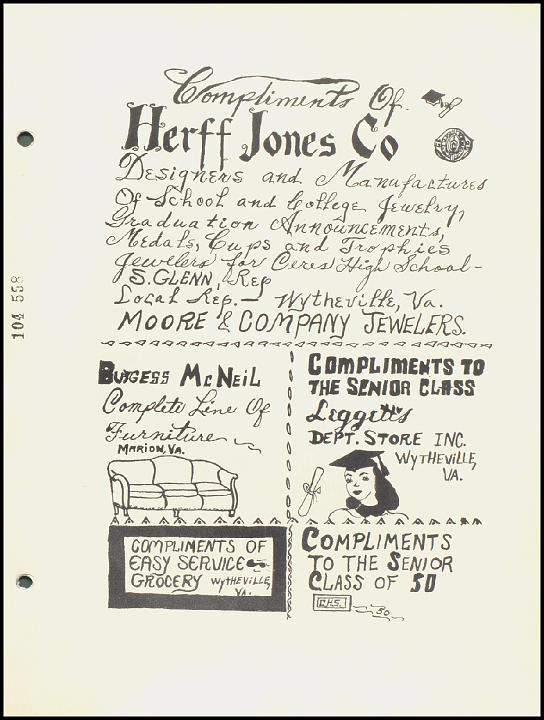 Compliments Of
Herff Jones Co
Designers and Manufactures
Of School and College Jewelry,
Graduation Announcements,
Medals, Cups and Trophies
Jewelers for Ceres High School-
S. GLENN, Rep
Local Rep. — Wytheville, Va.
MOORE & COMPANY JEWELERS.
104 558
BURGESS MCNEIL
Complete Line Of
Furniture
MARION, VA.
COMPLIMENTS TO
THE SENIOR CLASS
Leggetts
DEPT. STORE INC.
WYTHEVILLE,
VA.
COMPLIMENTS OF
EASY SERVICE
GROCERY WYTHEVILLE,
VA.
COMPLIMENTS
TO THE SENIOR
CLASS OF 50
C.H.S. 50